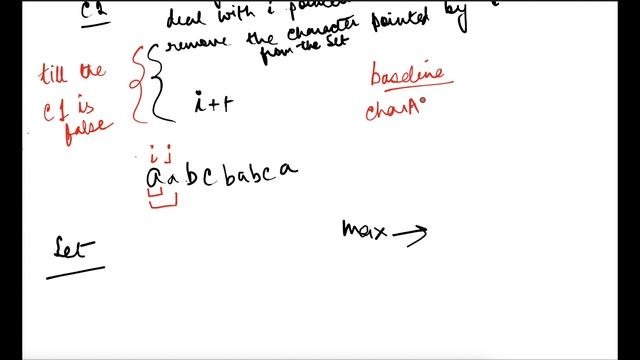 C1
deal with i pointe
remove the character pointed by i
from the set
till the
C1 is
false
i++
baseline
charA
i j
a a b c b a b c a
Set
max →